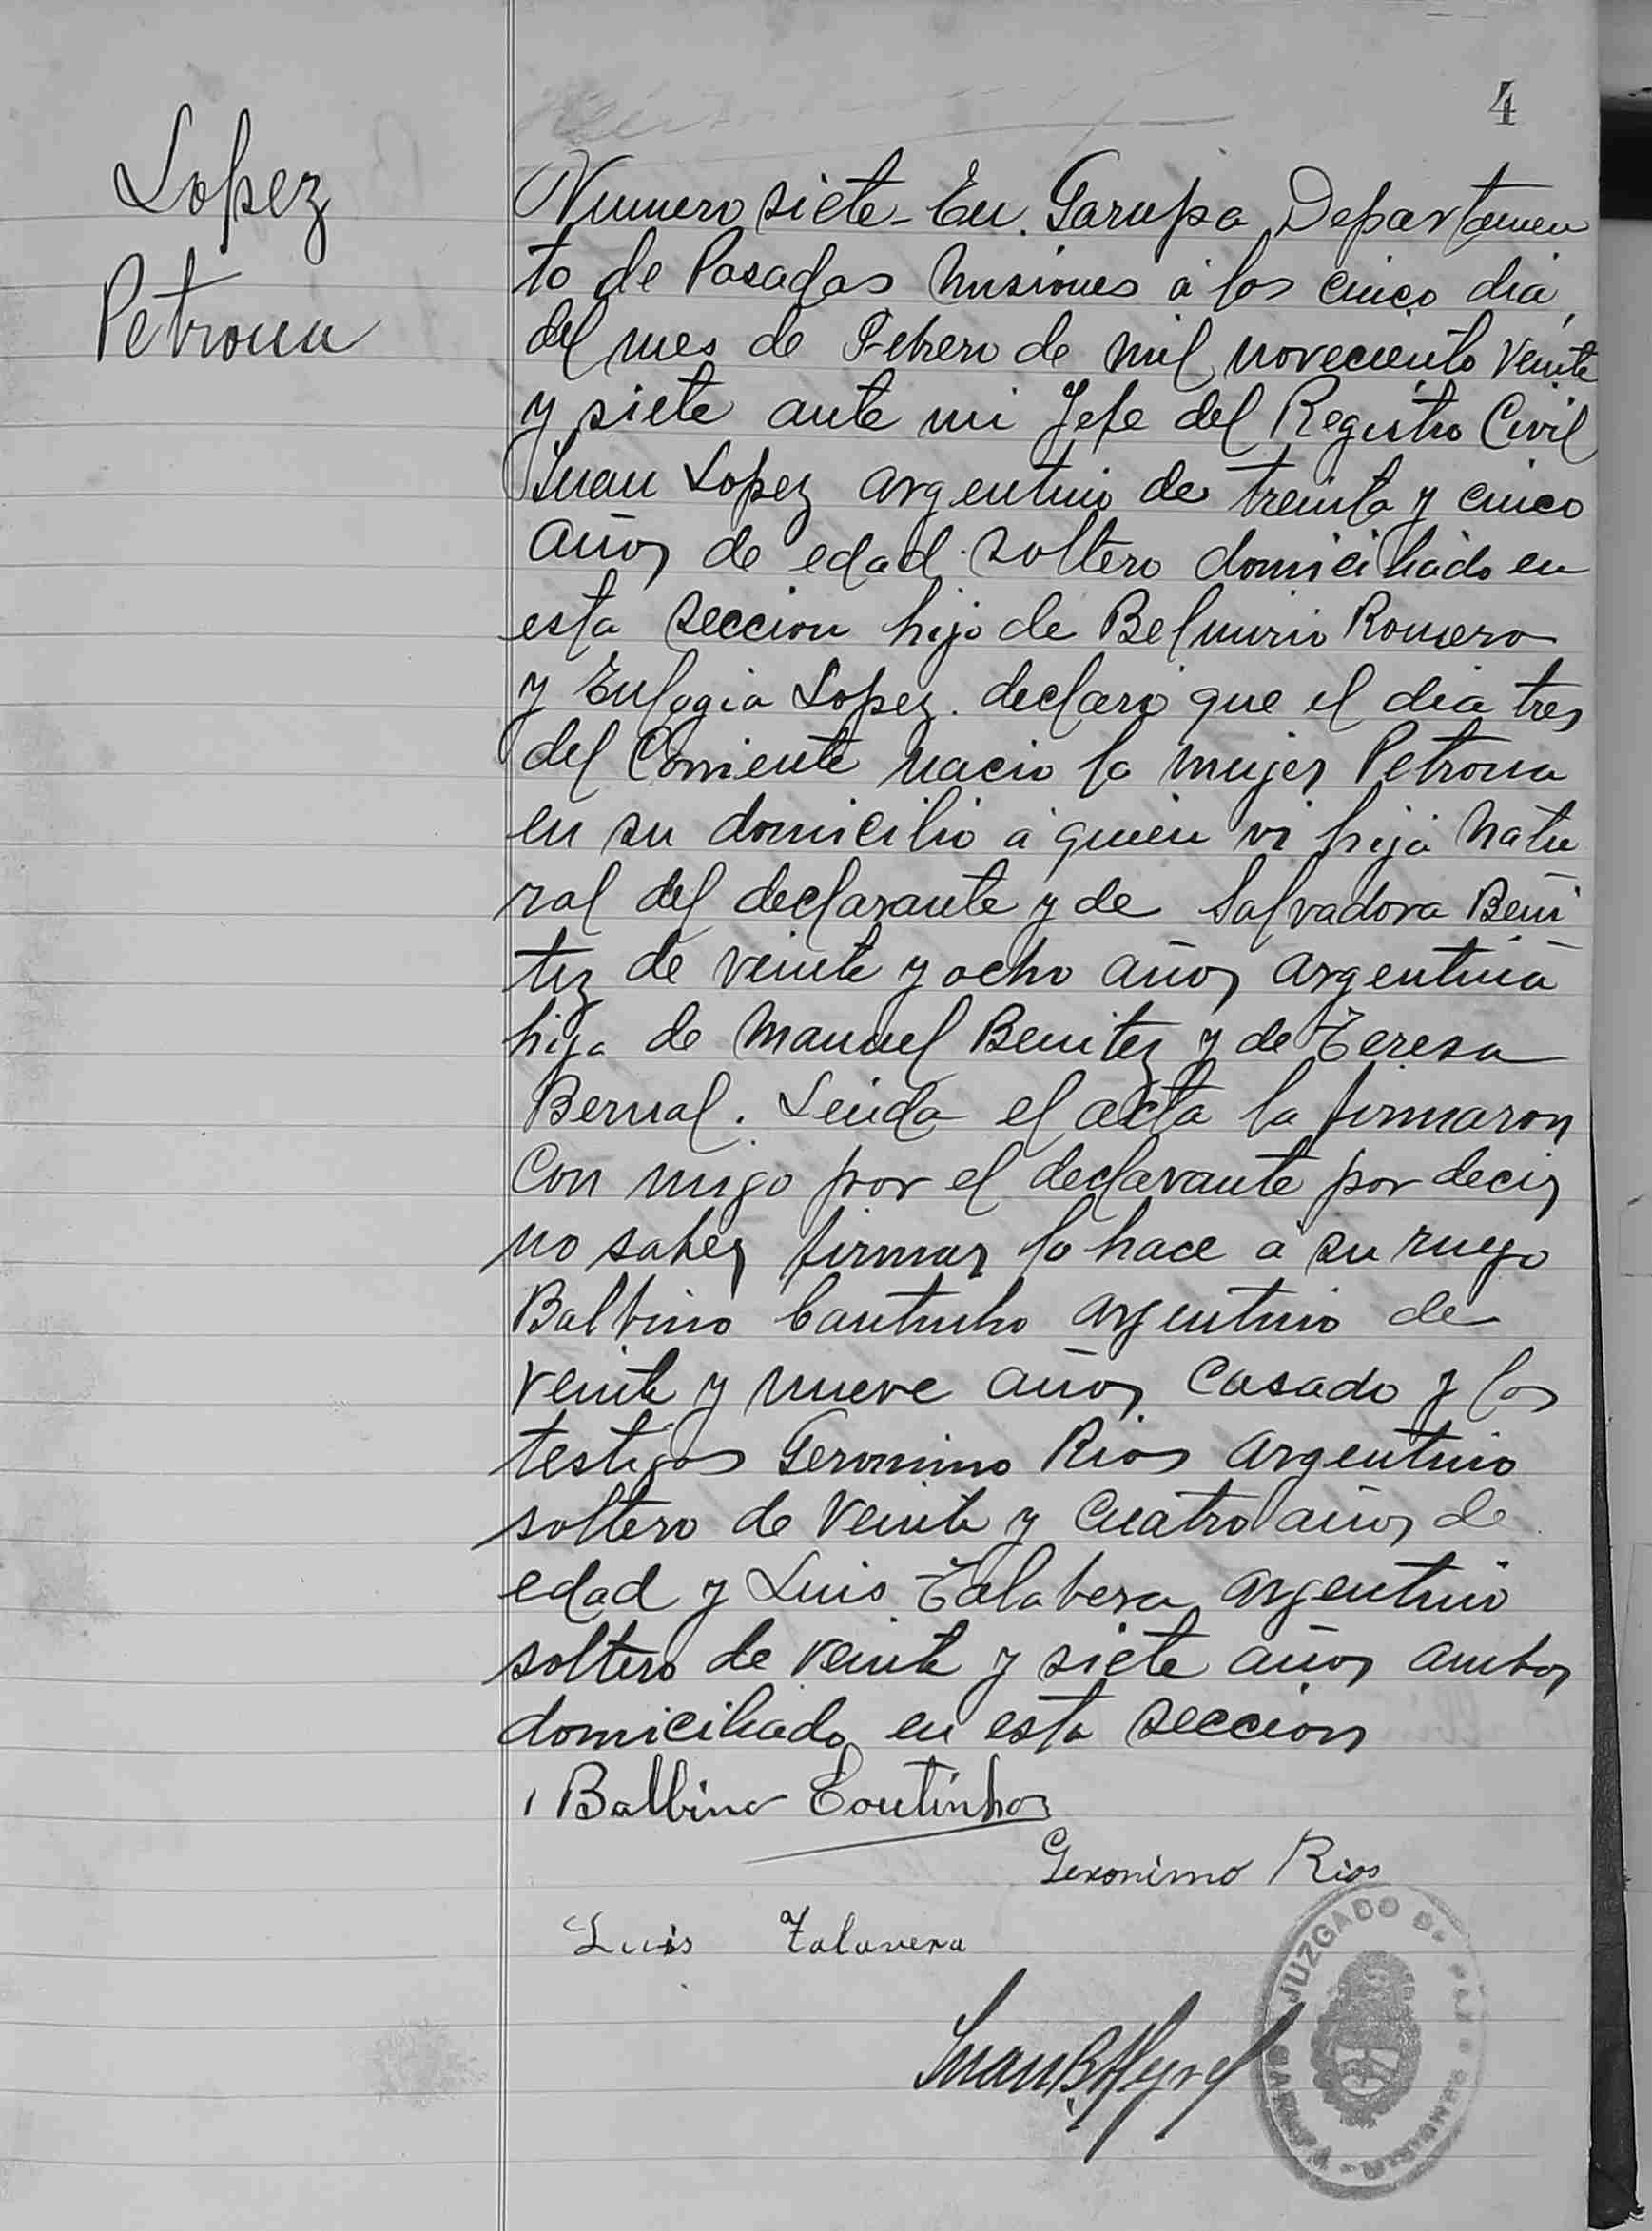 4
Lopez
Petrona
Numero siete - En Garupa Departamen
to de Posadas Misiones á los cinco dia
del mes de Febrero de mil noveciento veinte
y siete ante mi Jefe del Registro Civil
Juan Lopez argentino de treinta y cinco
años de edad soltero domiciliado en
esta seccion hijo de Belmirio Romero
y Eulogia Lopez. declaró que el dia tres
del Corriente nacio la mujer Petrona
en su domicilio á quien vi hija natu
ral del declarante y de Salvadora Beni
tez de veinte y ocho años argentina
hija de Manuel Benitez y de Teresa
Bernal. Leida el acta la firmaron
Con migo por el declarante por decir
no saber firmar lo hace á su ruego
Balbino Coutinho argentino de
veinte y nueve años Casado y los
testigos Geronimo Rios argentino
soltero de veinte y cuatro años de
edad y Luis Talabera argentino
soltero de veinte y siete años ambos
domiciliado en esta seccion
Balbino Coutinho
Geronimo Rios
Luis Talavera
Juan B
JUZGADO DE PAZ